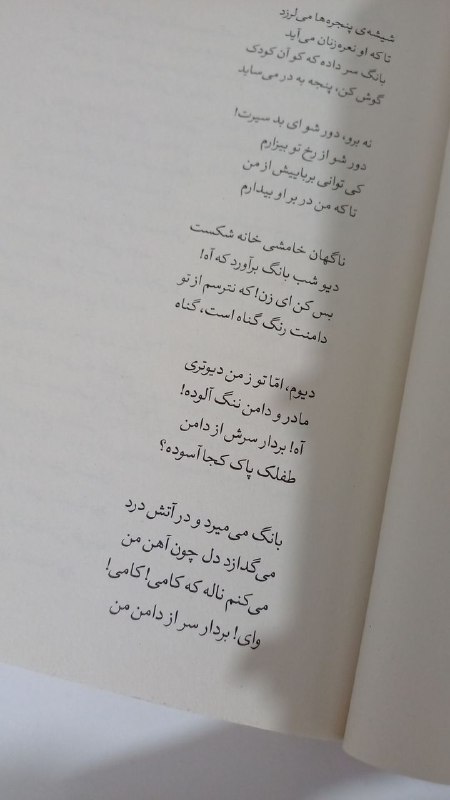 شیشه‌ی پنجره‌ها می‌لرزد
تا که او نعره‌زنان می‌آید
بانگ سر داده که کو آن کودک
گوش کن، پنجه به در می‌ساید
نه برو، دور شو ای بد سیرت!
دور شو از رخ تو بیزارم
کی توانی برباییش از من
تا که من در بر او بیدارم
ناگهان خامشی خانه شکست
دیو شب بانگ برآورد که آه!
بس کن ای زن! که نترسم از تو
دامنت رنگ گناه است، گناه
دیوم، امّا تو ز من دیوتری
مادر و دامن ننگ آلوده!
آه! بردار سرش از دامن
طفلک پاک کجا آسوده؟
بانگ می‌میرد و در آتش درد
می‌گدازد دل چون آهن من
می‌کنم ناله که کامی! کامی!
وای! بردار سر از دامن من